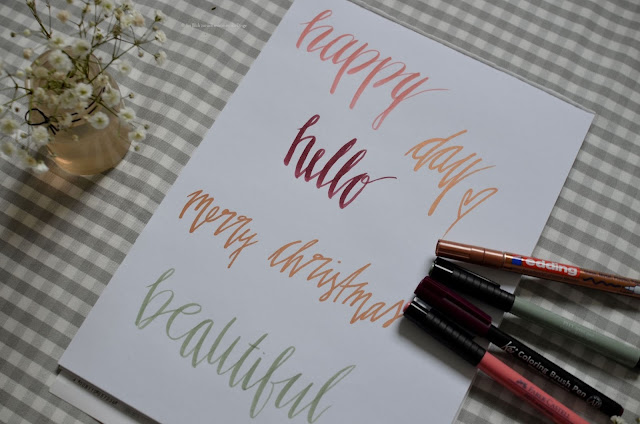 happy
day
hello
merry christmas
beautiful
edding
Coloring Brush Pen